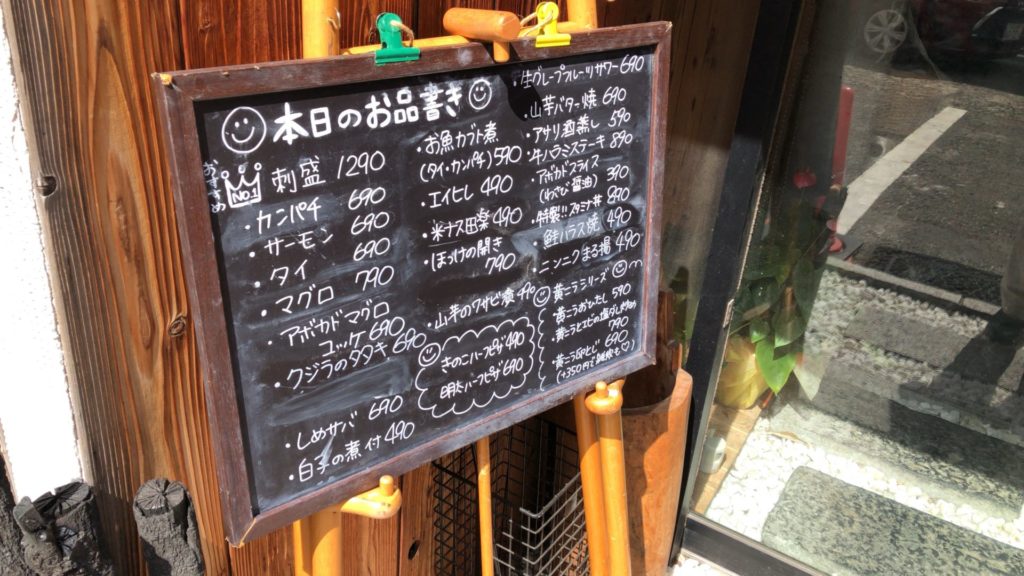 本日のお品書き
おすすめ
No.1
刺盛 1290
・カンパチ 690
・サーモン 690
・タイ 690
・マグロ 790
・アボカドマグロ
ユッケ 690
・クジラのタタキ 690
・しめサバ 690
・白子の煮付 490
・お魚カブト煮
(タイ・カンパチ) 590
・エイヒレ 490
・米ナス田楽 490
・ほっけの開き
790
・山芋のワサビ漬 490
きのこハーフピザ 490
明太ハーフピザ 690
・生グレープフルーツサワー 690
・山芋バター焼 690
・アサリ酒蒸し 590
・牛ハラミステーキ 890
・アボカドスライス
(わさび醤油) 390
・特製!!スタミナ丼 890
・鮭ハラス焼 490
・ニンニクまる揚 490
黄ニラシリーズ
・黄ニラおひたし 590
・黄ニラとエビの塩ダレ炒め
790
・黄ニラ卵とじ 690